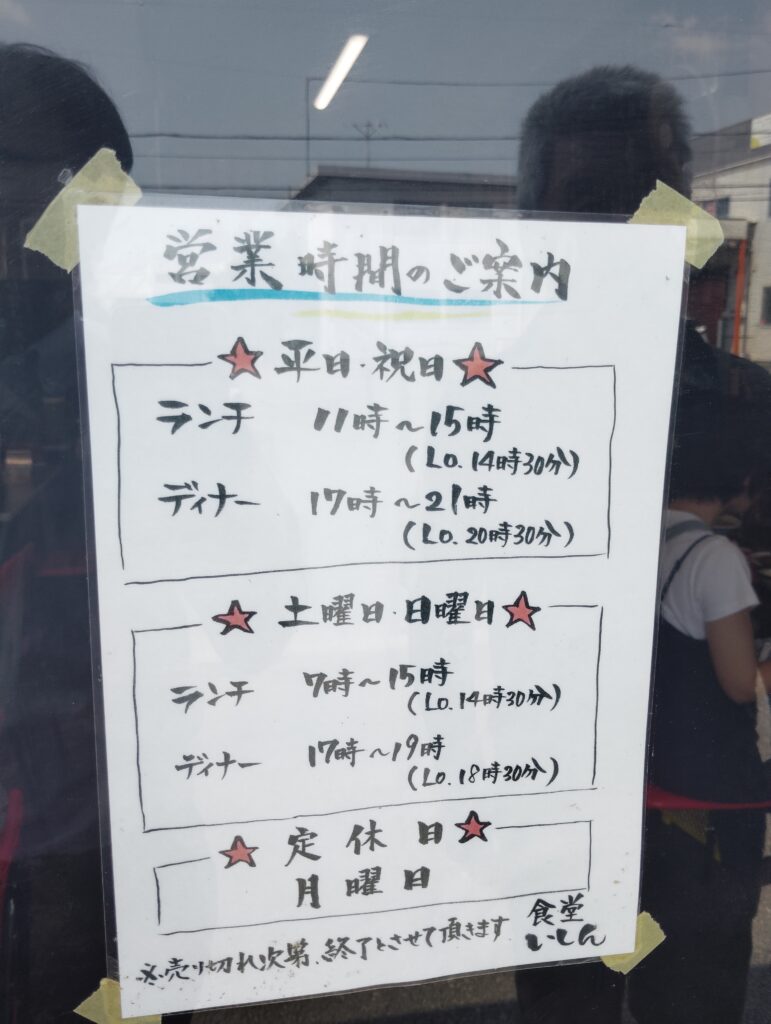 営業時間のご案内
平日・祝日
ランチ 11時～15時
(LO.14時30分)
ディナー 17時～21時
(LO.20時30分)
土曜日・日曜日
ランチ 7時～15時
(LO.14時30分)
ディナー 17時～19時
(LO.18時30分)
定休日
月曜日
※売り切れ次第、終了とさせて頂きます
食堂
いしん